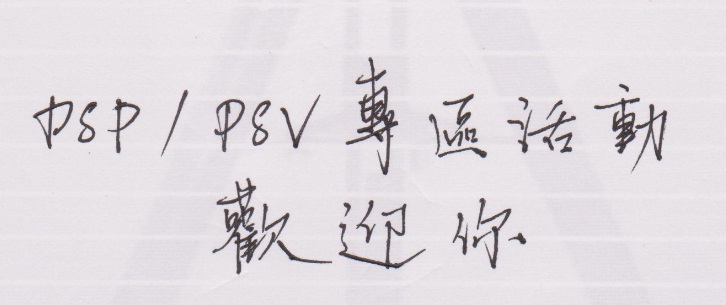 PSP/PSV專區活動
歡迎你